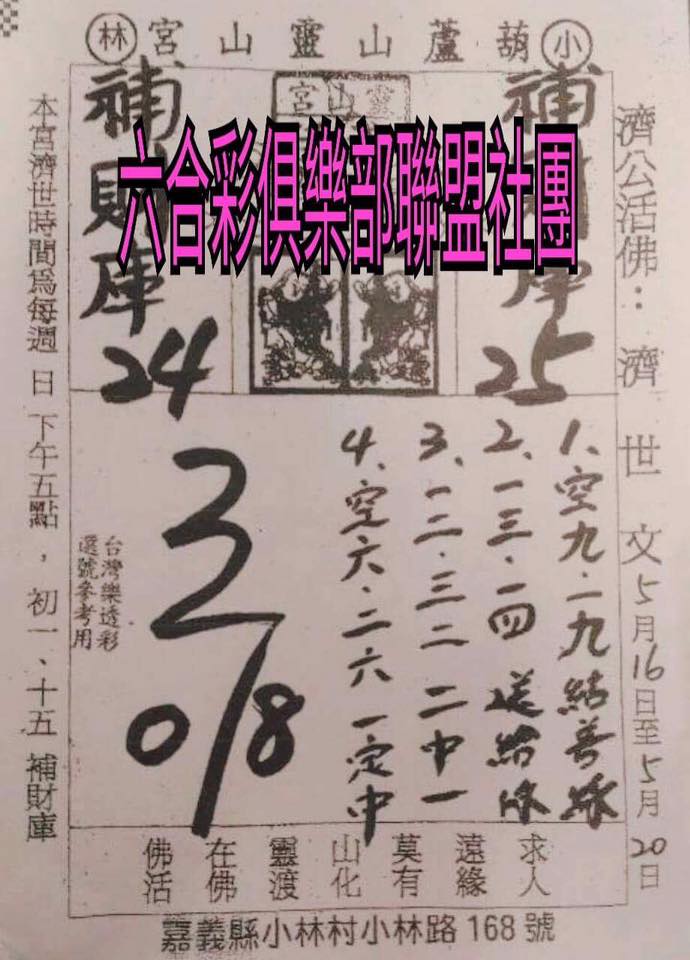 小葫蘆山靈山宮林
六合彩俱樂部聯盟社團
靈山宮
濟公活佛：濟世文5月16日至5月20日
補財庫
25
補財庫
24
1、空九·二九結善緣
2、一三·一四 送給你
3、一二·三二 二中一
4、空六·二六 一定中
3
0/8
台灣樂透彩
選號參考用
本宮濟世時間為每週日下午五點，初一、十五 補財庫
佛在靈山莫遠求
活佛渡化有緣人
嘉義縣小林村小林路168號